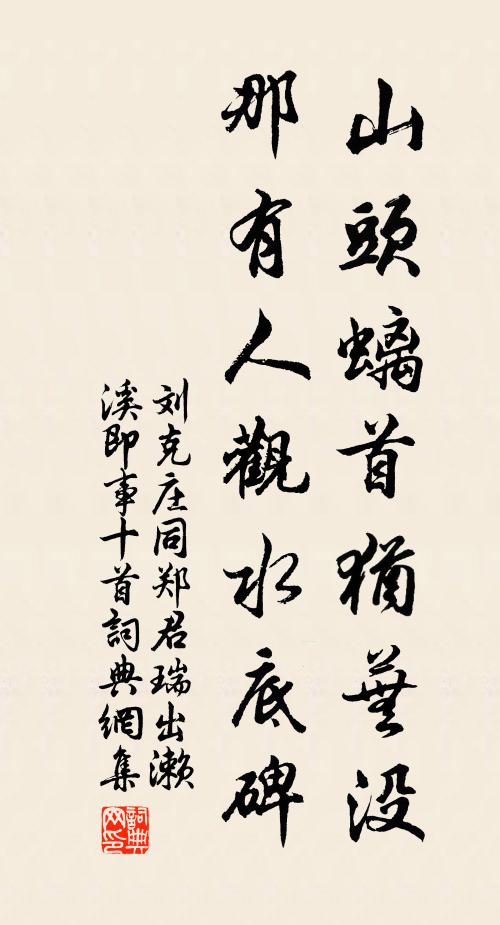 山頭螭首猶蕪没
那有人觀水底碑
刘克庄同郑君瑞出濑
溪即事十首詞典網集
詞典
网印